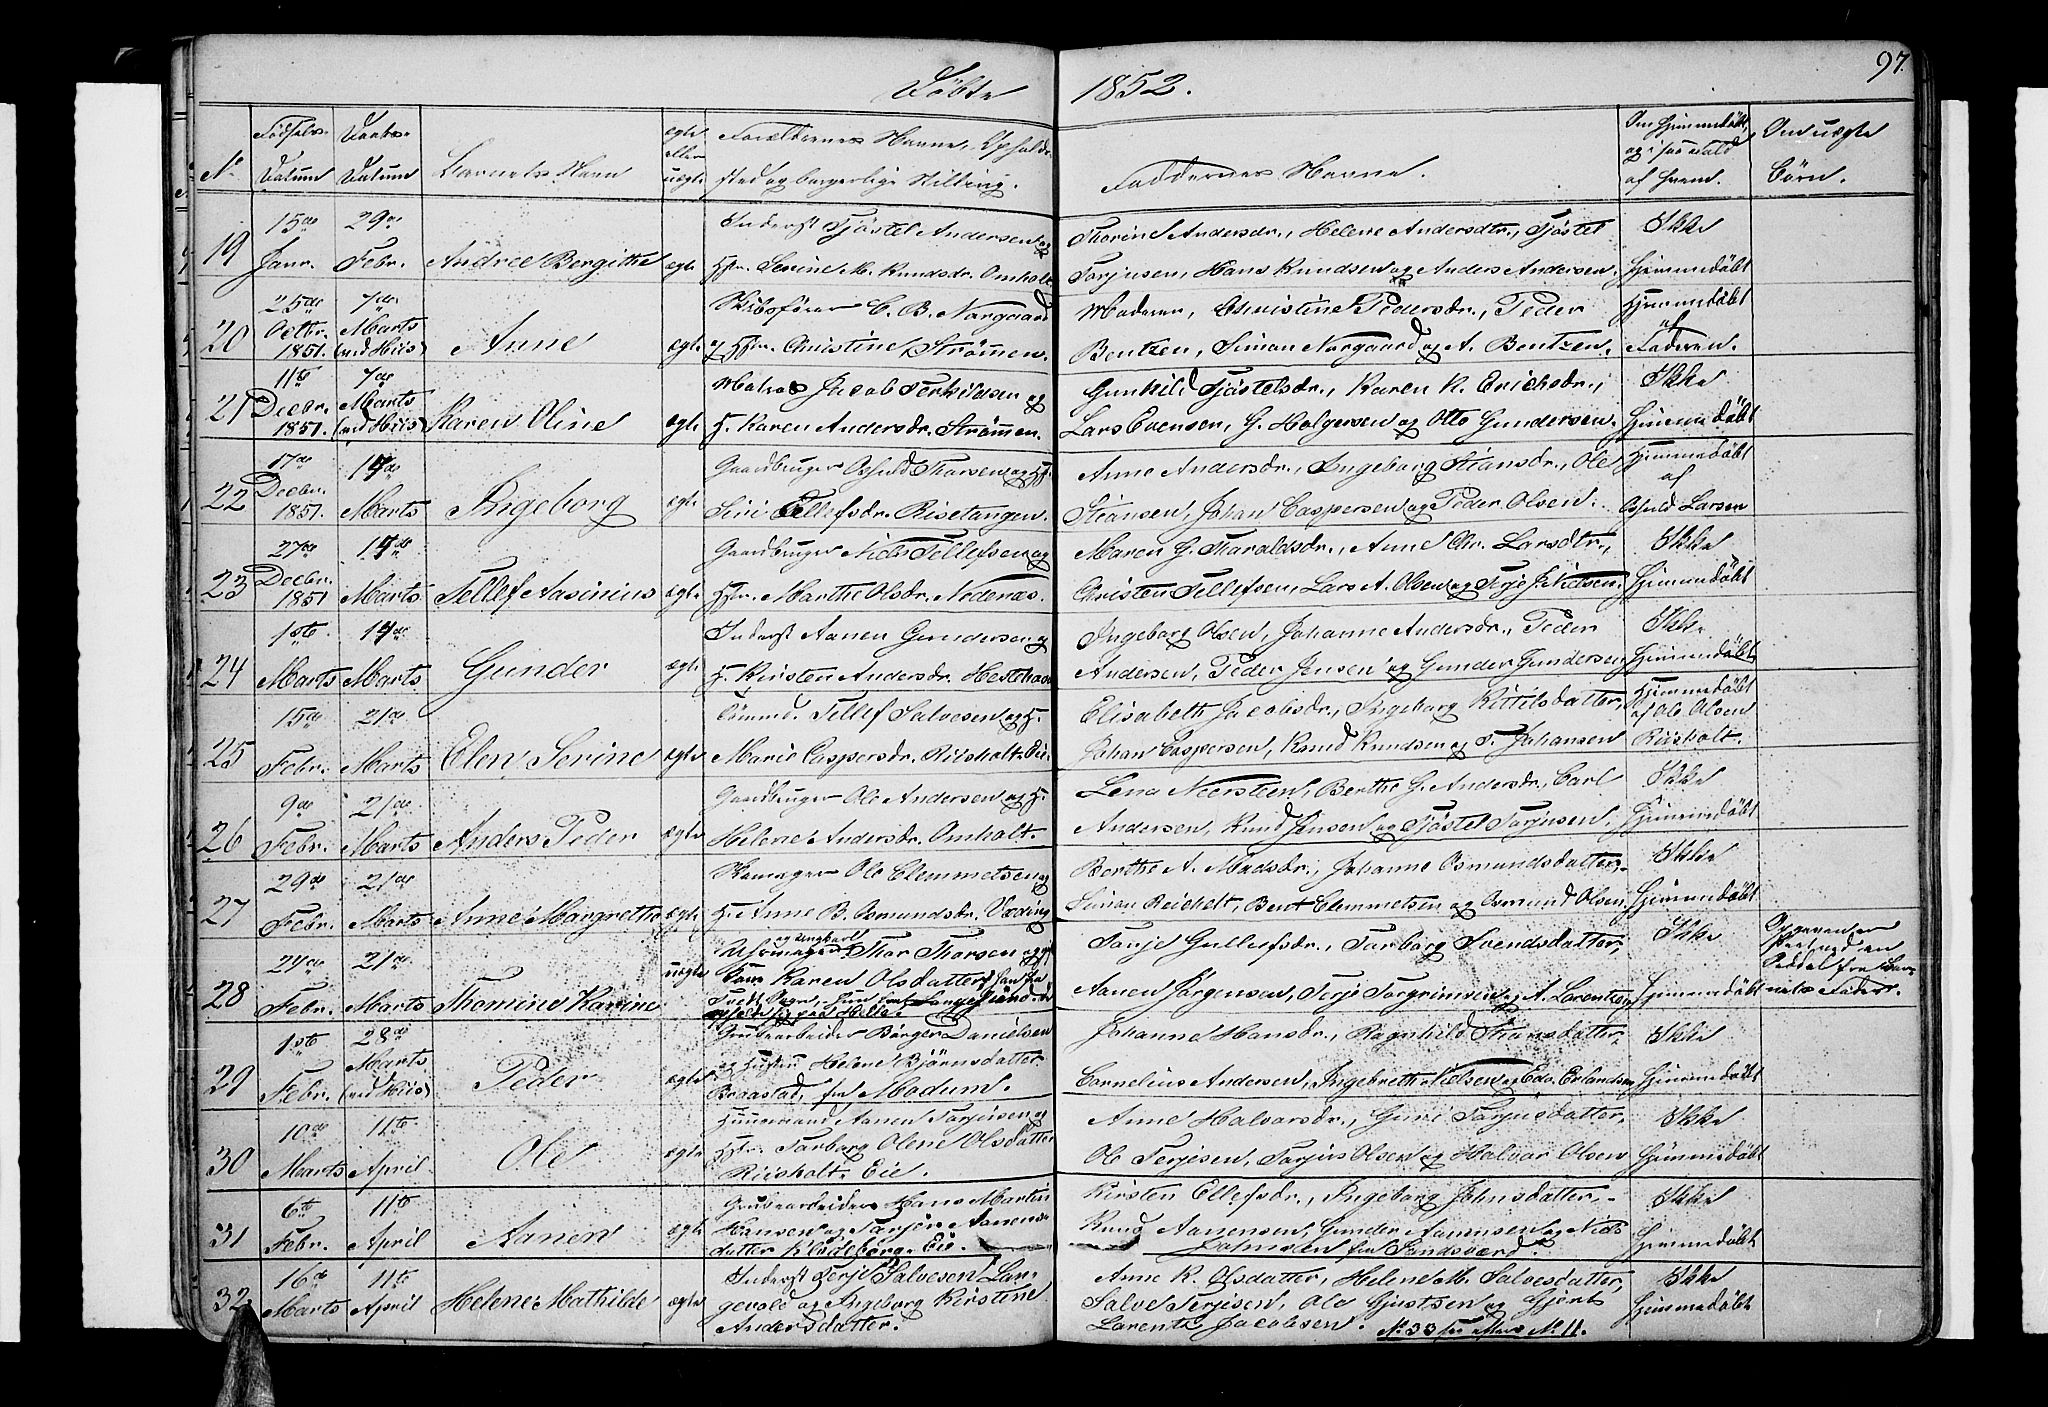 97.
Döbte 1852.
No
Födsels- Datum
Daabs- Datum
Barnets Navn
ægte eller uægte
Forældrenes Navne, Opholds- sted og borgerlige Stilling.
Faddernes Navne.
Om hjemmedöbt, og i saa Fald af hvem.
Om uægte Börn.
19
15de Janr.
29de Febr.
Andrea Bergitte
ægte
Inderst Tjöstel Andersen og
Hstr. Serine M. Knudsdr. Omholt.
Thorine Andersdr., Helene Andersdtr., Tjöstel
Torjusen, Hans Knudsen og Anders Andersen.
Ikke
Hjemmedöbt
20
25de Octbr. 1851.
7de Marts (ved Hiis)
Anne
ægte
Skibsförer C. B. Norgaard
og Hstr. Christine Strömmen.
Moderen, Christine Pedersdr., Peder
Bentzen, Simon Norgaard og A. Bentzen.
Hjemmedöbt
af
Faderen.
21
11te Decbr. 1851.
7de Marts (ved Hiis)
Karen Oline
ægte
Matros Jacob Terkildsen og
H. Karen Andersdr. Strömmen.
Gunhild Tjöstelsdr., Karen K. Erichsdr.,
Lars Evensen, G. Holgersen og Otto Gundersen.
Ikke
Hjemmedöbt
22
17de Decbr. 1851.
14de Marts
Ingeborg
ægte
Gaardbruger Osuld Thorsen og H.
Siri Tellefsdr. Risetangen.
Anne Andersdr., Ingeborg Stiansdr., Ole
Stiansen, Johan Caspersen og Peder Olsen.
Hjemmedöbt
af
Osuld Larsen
23
27de Decbr. 1851
14de Marts
Tellef Aasinius
ægte
Gaardbruger Niels Tellefsen og
Hstr. Marthe Olsdr. Nedenæs.
Maren G. Haraldsdr., Anne Chr. Larsdtr.,
Christen Tellefsen, Lars A. Olsen og Terje J. Nielsen.
Ikke
Hjemmedöbt
24
1ste Marts
14de Marts
Gunder
ægte
Inderst Aanen Gundersen og
H. Kirsten Andersdr. Hestehave
Ingeborg Olsen, Johanne Andersdr., Peder
Andersen, Peder Jensen og Gunder Gundersen
Ikke
Hjemmedöbt
25
15de Febr.
21de Marts
Elen Serine
ægte
Tömmd. Tellef Salvesen og H.
Marie Caspersdr. Riisholt Eie.
Elisabeth Jacobsdr., Ingeborg Kittilsdatter,
Johan Caspersen, Knud Knudsen og T. Johansen
Hjemmedöbt
af Ole Olsen
Riisholt.
26
9de Febr.
21de Marts
Anders Peder
ægte
Gaardbruger Ole Andersen og H.
Helene Andersdr. Omholt.
Lena Neersteen, Berthe G. Andersdr., Carl
Andersen, Knud Jensen og Tjöstel Torjusen.
Ikke
Hjemmedöbt
27
29de Febr.
21de Marts
Anne Margrethe
ægte
Skomager Ole Clemmetsen og
H. Anne B. Osmundsdr. Vreding
Berthe A. Madsdr., Johanne Osmundsdatter,
Simon Reichelt, Bent Clemmetsen og Osmund Olsen
Ikke
Hjemmedöbt
28
24de Febr.
21de Marts
Thomine Karine
uægte
og ungkarl
Uhrmager Thor Thorsen og
Karen Olsdatter,
Torje Gullefsdr., Torborg Svendsdatter,
Aanen Jörgensen, Terje Torgrimsen og A. Larentzen
Ikke
Hjemmedöbt
Opgaven er
skeet ved en
Seddel fra Bar-
nets Fader.
29
1ste Febr.
28de Marts (ved Hiis)
Peder
ægte
Grubearbeider Börger Danielsen
og Hustru Helene Björnsdatter
Braastad, fra Modum.
Johanne Hansdr., Ragnhild Hansdatter,
Cornelius Andersen, Ingebreth Nielsen og Edv. Erlandsen
Ikke
Hjemmedöbt
30
10de Marts
11te April
Ole
ægte
Huusmand Aanen Torjusen og
Hstr. Torborg Olene Olsdatter
Riisholt Eie.
Anne Halvorsdr., Guri Torjusdatter
Ole Terjesen, Torjus Olsen og Halvor Olsen
Ikke
Hjemmedöbt
31
6te Febr.
11te April
Aanen
ægte
Grubearbeider Hans Martin
Hansen og Torjör Aanens-
datter Klodeborg Eie.
Kirsten Ellefsdr., Ingeborg Johnsdatter,
Knud Aanensen, Gunder Aanensen og Niels
Johnsen fra Sandsværd.
Ikke
Hjemmedöbt
32
16de Marts
11te April
Helene Mathilde
ægte
Inderst Terje Salvesen Lan-
gevold og Ingeborg Kirstine
Andersdatter.
Anne K. Olsdatter, Helene M. Salvesdatter,
Salve Terjesen, Ole Gjustsen og Gjert
Larentz Jacobsen.
No. 33 see efter No. 11.
Ikke
Hjemmedöbt